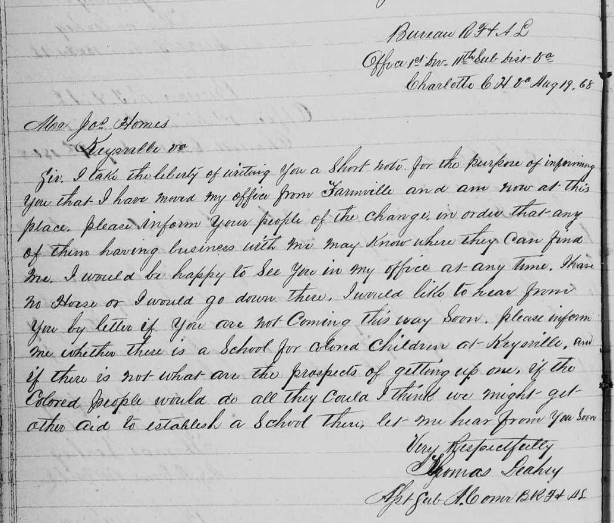 Bureau R F & A L
Office 1st Div. 11th Sub Dist Va
Charlotte C. H. Va Aug 19. 68
Jos. Homes
Keysville Va
Sir. I take the liberty of writing You a Short note for the purpose of informing
You that I have moved my office from Farmville and am now at this
place. please inform Your people of the change, in order that any
of them having business with me may Know where they Can find
me. I would be happy to See You in my office at any time. I have
no Horse or I would go down there. I would like to hear from
You by letter if You are not Coming this way Soon. please inform
me whether there is a School for Colored Children at Keysville, and
if there is not what are the prospects of getting up one, if the
Colored people would do all they Could I think we might get
other aid to establish a School there, let me hear from You Soon
Very Respectfully
Thomas Leahey
Sub A. Comr B R F & A L